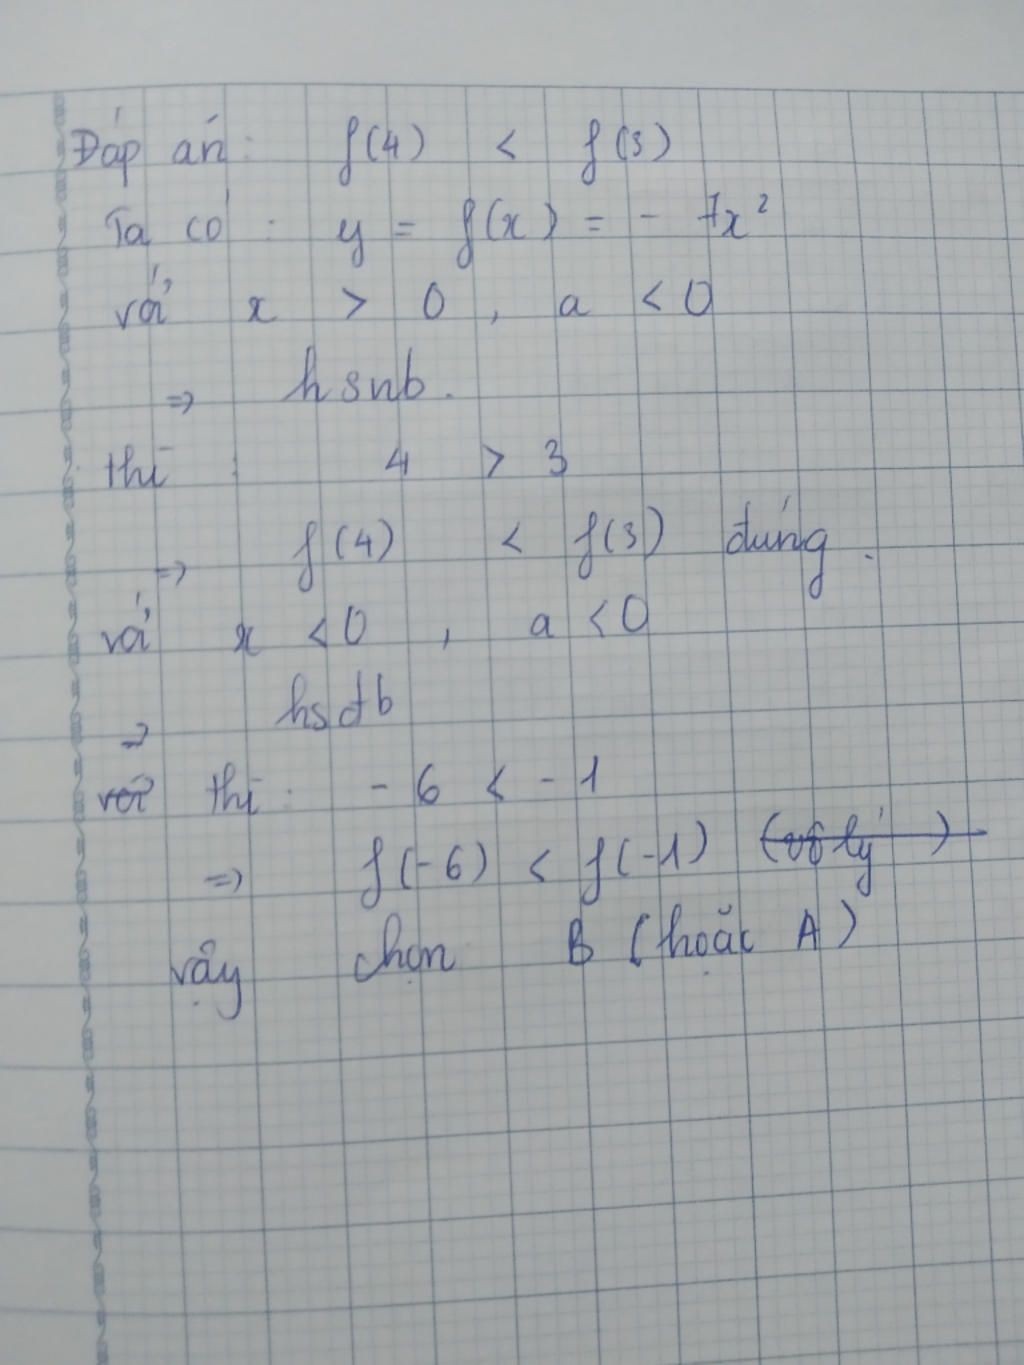 Đáp án: f(4) < f(3)
Ta có: y = f(x) = - 7x²
với x > 0 , a < 0
=> hsnb.
thì : 4 > 3
=> f(4) < f(3) đúng.
với x < 0 , a < 0
=> hsđb
với thì: - 6 < - 1
=> f(-6) < f(-1) (vô lý)
vậy chọn B (hoặc A)